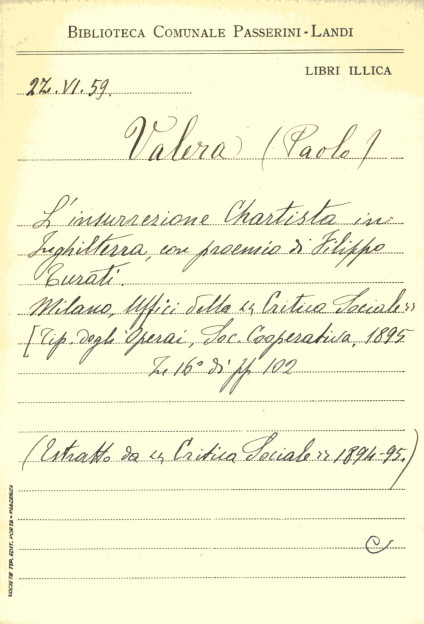 BIBLIOTECA COMUNALE PASSERINI-LANDI
LIBRI ILLICA
22.VI.59.
Valera (Paolo)
L'insurrezione Chartista in
Inghilterra, con proemio di Filippo
Turati.
Milano, Uffici della "Critica Sociale"
[Tip. degli Operai, Soc. Cooperativa, 1895
In 16° di pp 102
(Estratto da "Critica Sociale" 1894-95.)
SOCIETÀ TIP. EDIT. PORTA - PIACENZA